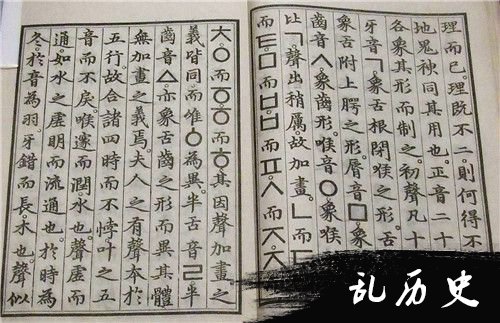 理而已。理既不二。則何得不
地鬼神同其用也。正音二十
各象其形而制之。初聲凡十
牙音ㄱ。象舌根閉喉之形。
象舌附上腭之形。脣音ㅁ。象
齒音ㅅ。象齒形。喉音ㅇ。象喉
比ㄱ。聲出稍厲。故加畫。ㄴ而
而ㅌ。ㅁ而ㅂ。ㅂ而ㅍ。ㅅ而ㅈ。
ㅊ。ㅇ而ㆆ。ㆆ而ㅎ。其因聲加畫之
義皆同。而唯ㆁ為異。半舌音ㄹ。半
齒音ㅿ。亦象舌齒之形而異其體。
無加畫之義焉。夫人之有聲本於
五行。故合諸四時而不悖。叶之五
音而不戾。喉邃而潤。水也。聲虛而
通。如水之虛明而流通也。於時為
冬。於音為羽。牙錯而長。木也。聲似
乱历史